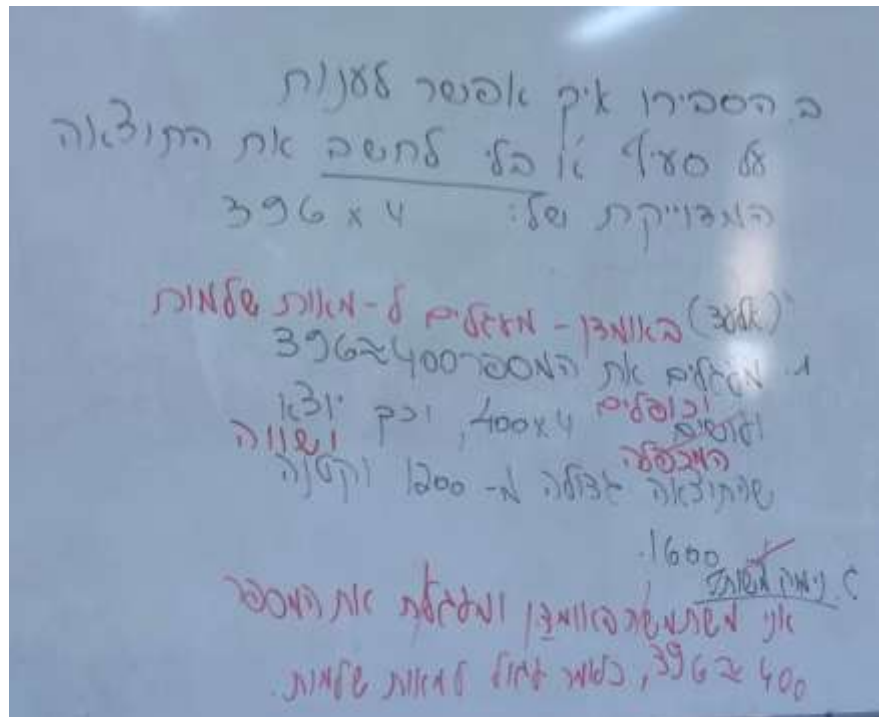 ב. הסבירו איך אפשר לענות
על סעיף א' בלי לחשב את התוצאה
המדוייקת של: 396 x 4
(אלעד) באומדן - מעגלים ל-מאות שלמות
1. מעגלים את המספר 396≈400
וכופלים
ועושים 400x4, וכך יוצא
המכפלה ושווה
שהתוצאה גדולה מ- 1200 וקטנה
1600.
2.
אני משתמשת באומדן ומעגלת את המספר
396 ≈ 400, כלומר עיגול למאות שלמות.